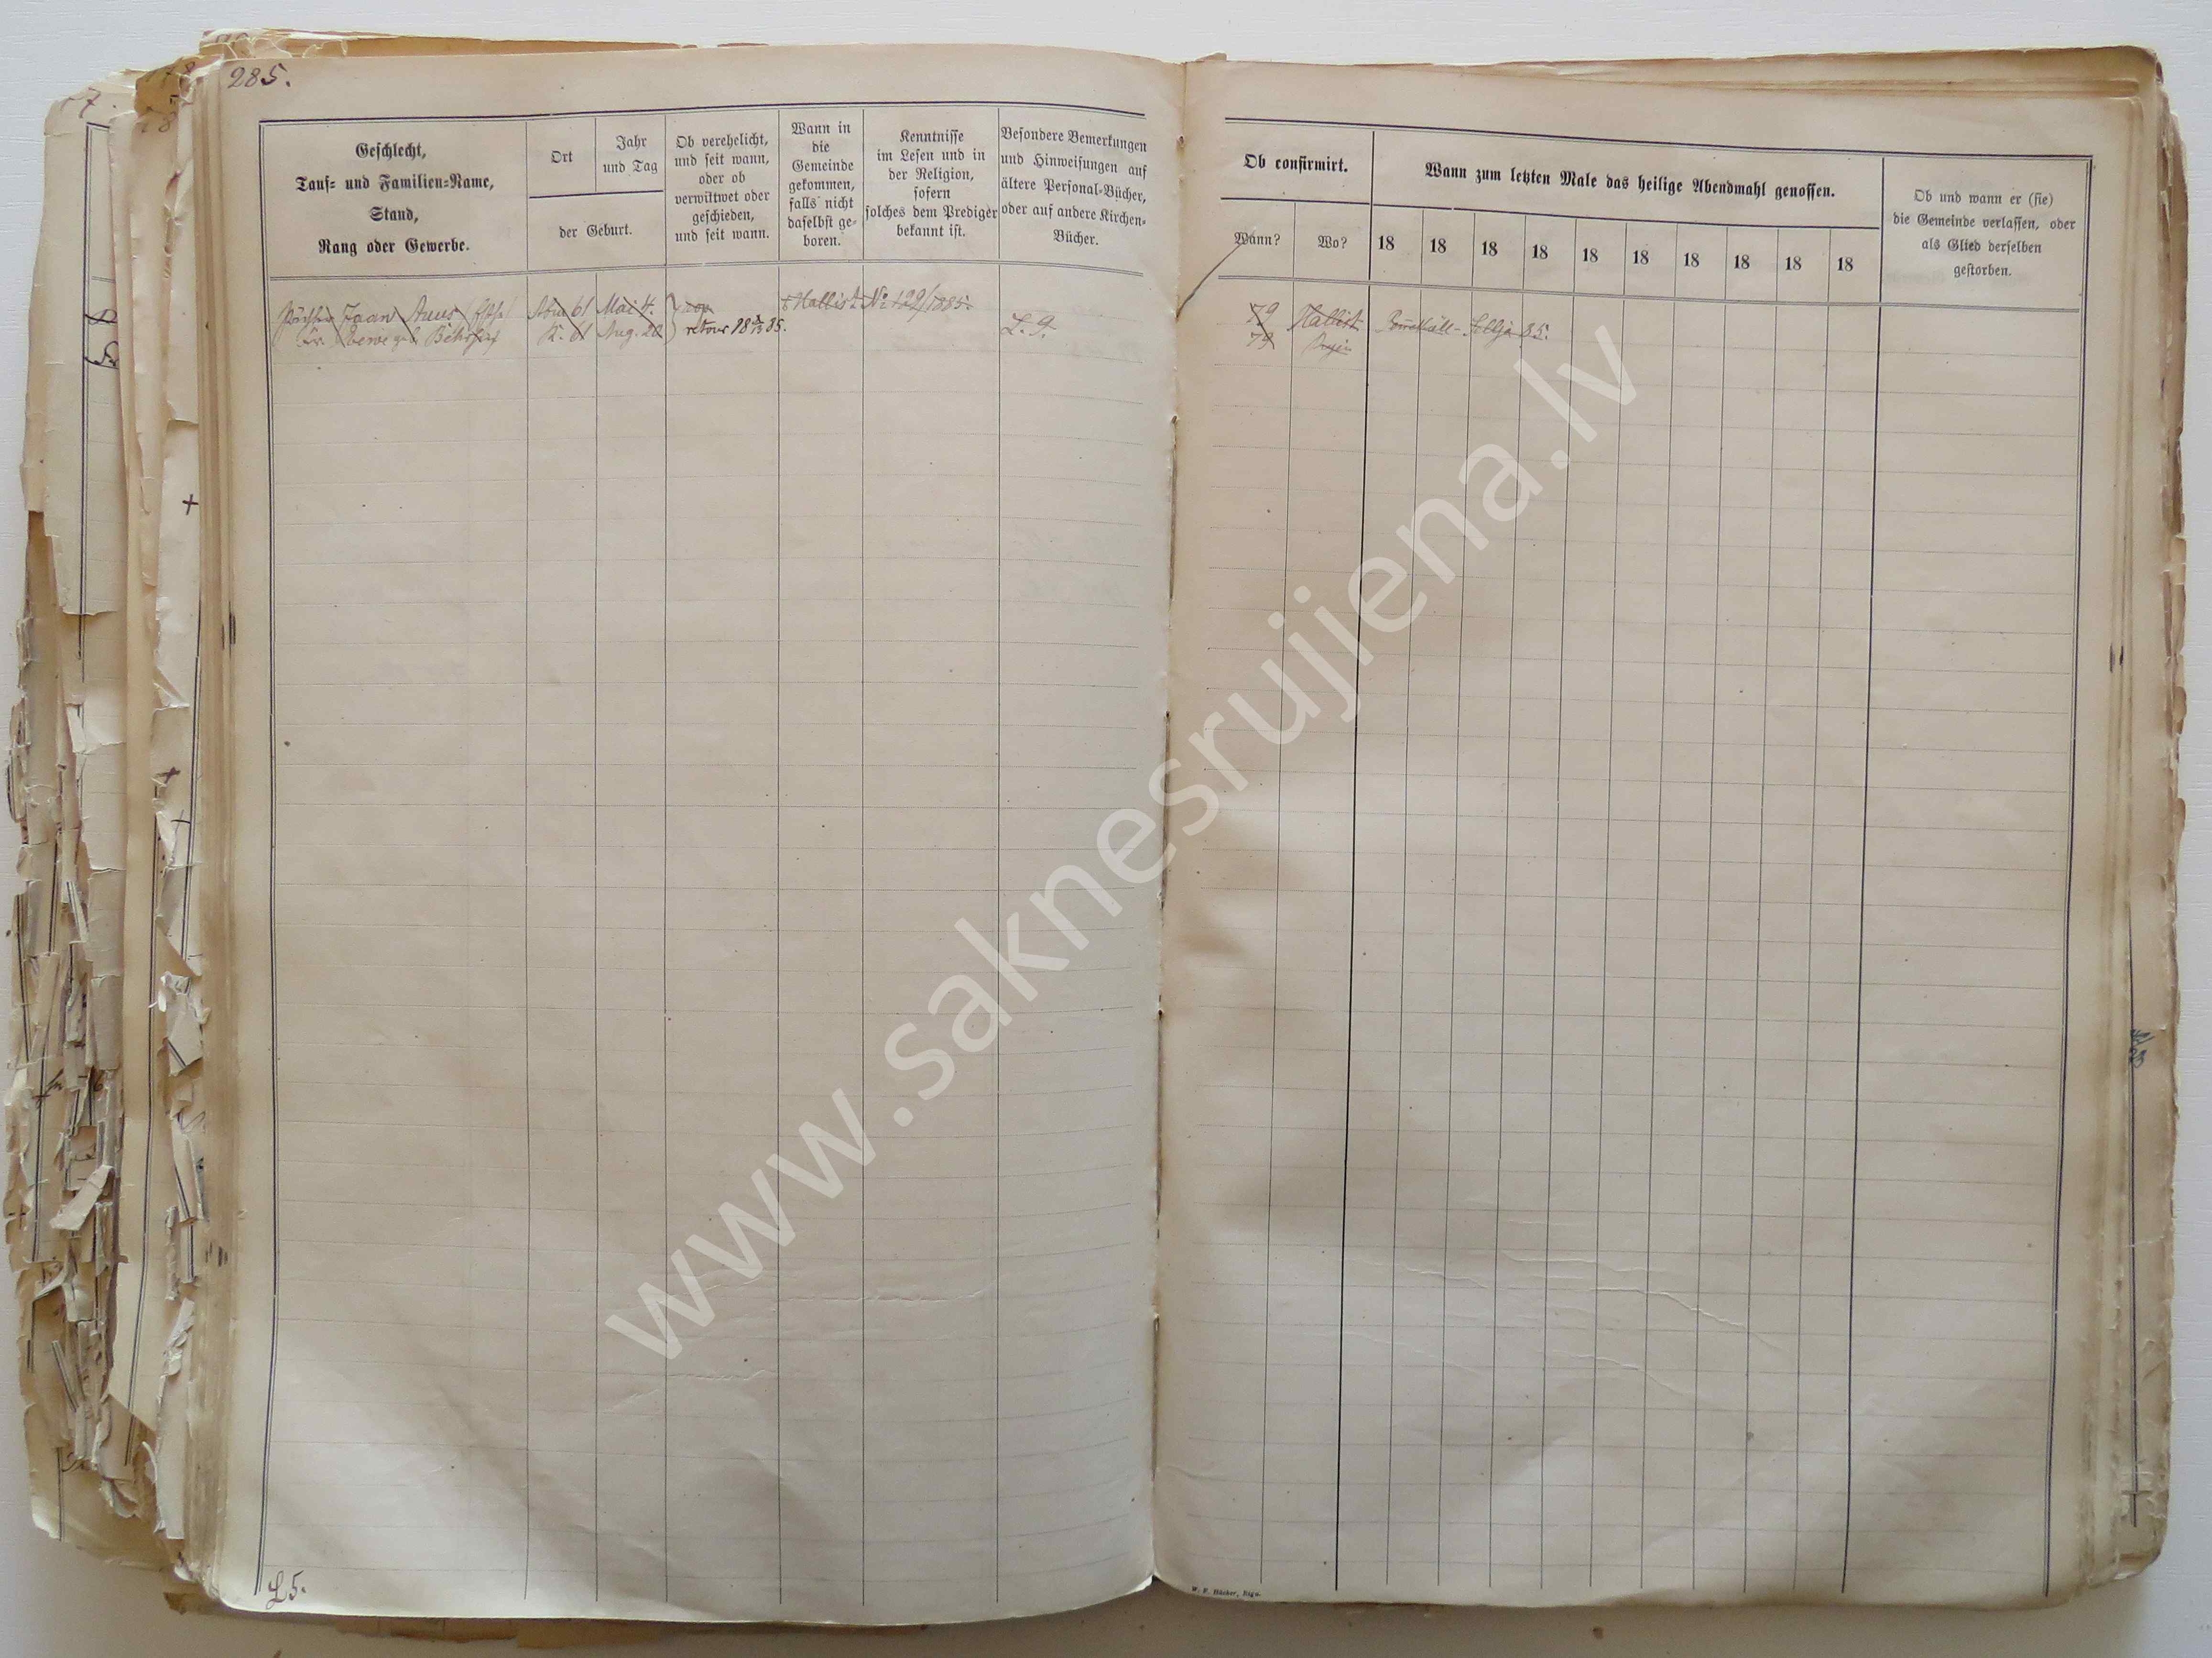 285.
Geschlecht,
Tauf- und Familien-Name,
Stand,
Rang oder Gewerbe.
Ort
Jahr
und Tag
der Geburt.
Ob verehelicht,
und seit wann,
oder ob
verwittwet oder
geschieden,
und seit wann.
Wann in
die
Gemeinde
gekommen,
falls nicht
daselbst ge-
boren.
Kenntnisse
im Lesen und in
der Religion,
sofern
solches dem Prediger
bekannt ist.
Besondere Bemerkungen
und Hinweisungen auf
ältere Personal-Bücher,
oder auf andere Kirchen-
Bücher.
Jaan 61 Mai 4. Hallist № 129/1885.
geb. K. 61 Aug. 20 retour L. 9.
L5.
Ob confirmirt.
Wann?
Wo?
Wann zum letzten Male das heilige Abendmahl genossen.
18 18 18 18 18 18 18 18 18 18
Ob und wann er (sie)
die Gemeinde verlassen, oder
als Glied derselben
gestorben.
79 Hallist 85.
79
W. F. Häcker, Riga.
www.saknesrujiena.lv